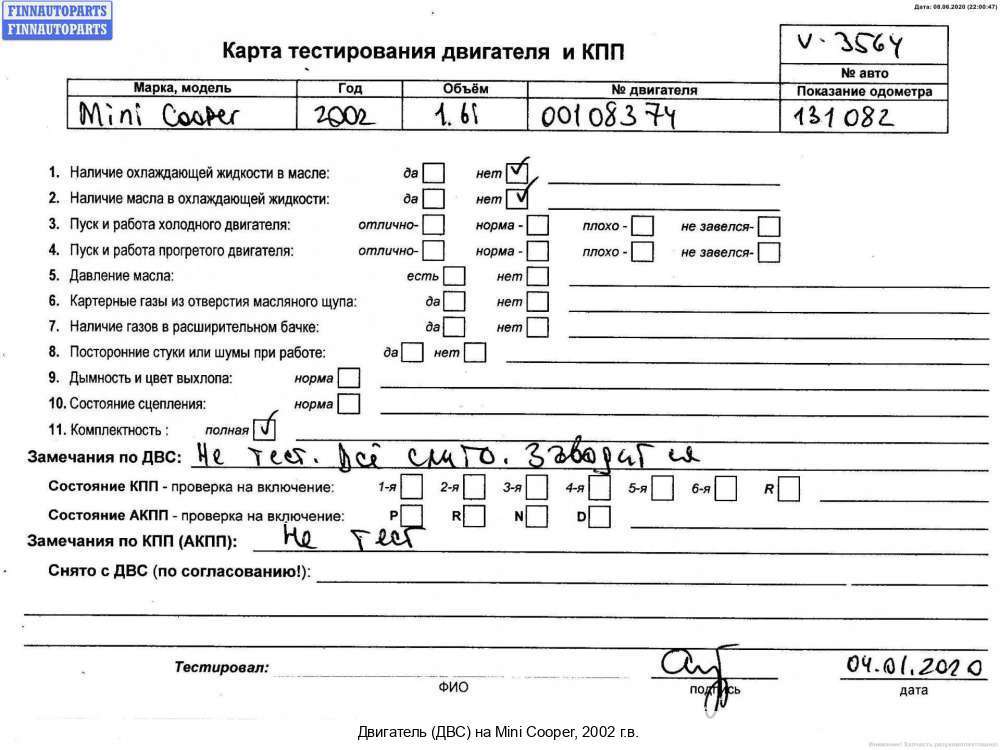 FINNAUTOPARTS
FINNAUTOPARTS
Дата: 08.06.2020 (22:00:47)
Карта тестирования двигателя и КПП
V-3564
№ авто
Марка, модель Год Объём № двигателя Показание одометра
Mini Cooper 2002 1.6i 00108374 131 082
1. Наличие охлаждающей жидкости в масле: да нет
2. Наличие масла в охлаждающей жидкости: да нет
3. Пуск и работа холодного двигателя: отлично- норма - плохо - не завелся-
4. Пуск и работа прогретого двигателя: отлично- норма - плохо - не завелся-
5. Давление масла: есть нет
6. Картерные газы из отверстия масляного щупа: да нет
7. Наличие газов в расширительном бачке: да нет
8. Посторонние стуки или шумы при работе: да нет
9. Дымность и цвет выхлопа: норма
10. Состояние сцепления: норма
11. Комплектность : полная
Замечания по ДВС: Не тест. Всё слито. Заводится
Состояние КПП - проверка на включение: 1-я 2-я 3-я 4-я 5-я 6-я R
Состояние АКПП - проверка на включение: P R N D
Замечания по КПП (АКПП): Не тест
Снято с ДВС (по согласованию!):
Тестировал: 04.01.2020
ФИО подпись дата
Двигатель (ДВС) на Mini Cooper, 2002 г.в.